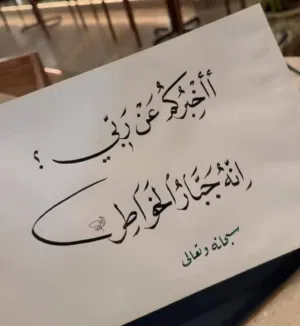 أَأُخْبِرُكُم عَنْ رَبِّي ؟
إنّهُ جَبَّارُ الخَوَاطِر
سبحانه وتعالى